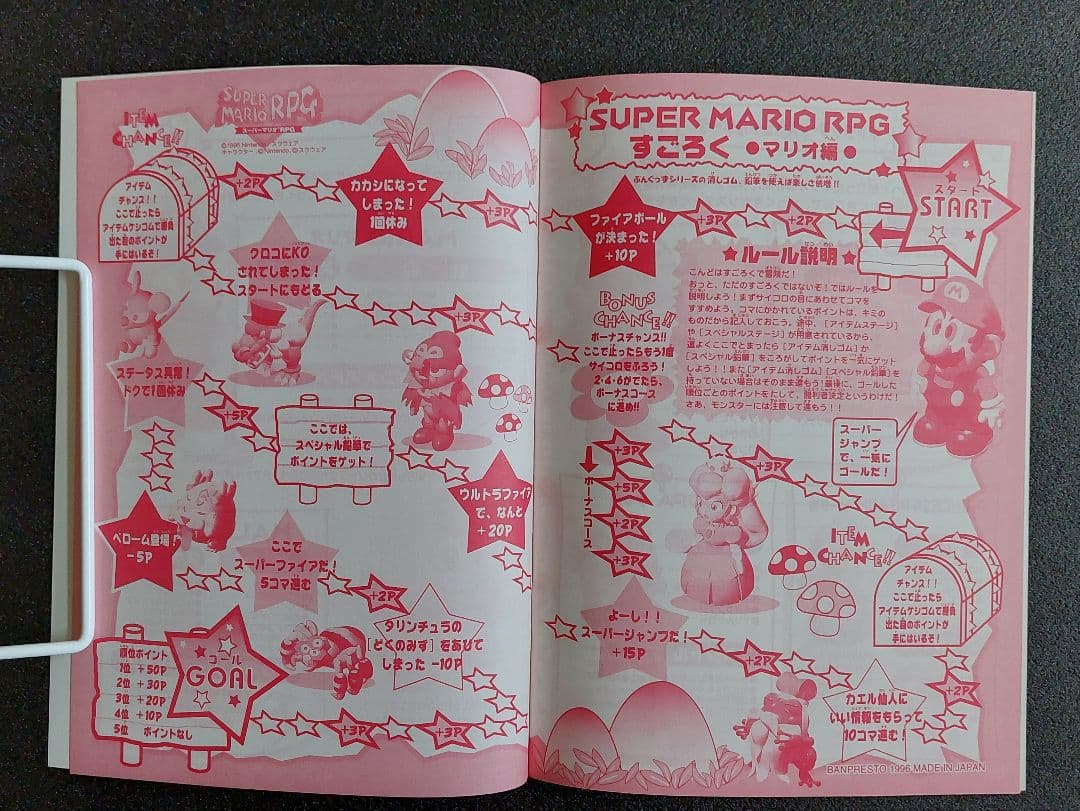 SUPER MARIO RPG
すごろく ●マリオ編●
ぶんぐっずシリーズの消しゴム、鉛筆を使えば楽しさ倍増!!
スタート
START
+2P
+3P
ファイアボール
が決まった!
+10P
★ルール説明★
こんどはすごろくで冒険だ!
おっと、ただのすごろくではないぞ!ではルールを
説明しよう!まずサイコロの目にあわせてコマを
すすめよう。コマにかかれているポイントは、キミの
ものだから記入しておこう。途中、[アイテムステージ]
や[スペシャルステージ]が用意されているから、
運よくここでとまったら[アイテム消しゴム]か
[スペシャル鉛筆]をころがしてポイントを一気にゲット
しよう!!また[アイテム消しゴム][スペシャル鉛筆]を
持っていない場合はそのまま進もう!最後に、ゴールした
順位ごとのポイントをたして、勝利者決定というわけだ!
さあ、モンスターには注意して進もう!!
BONUS
CHANCE!!
ボーナスチャンス!!
ここで止ったらもう1度
サイコロをふろう!
2・4・6がでたら、
ボーナスコース
に進め!!
スーパー
ジャンプ
で、一気に
ゴールだ!
ボーナスコース
+3P
+5P
+2P
+3P
+3P
ITEM
CHANCE!!
アイテム
チャンス!!
ここで止ったら
アイテムケシゴムで勝負
出た目のポイントが
手にはいるぞ!
よーし!!
スーパージャンプだ!
+15P
+2P
カエル仙人に
いい情報をもらって
10コマ進む!
+2P
BANPRESTO 1996 MADE IN JAPAN
ITEM
CHANCE!!
SUPER
MARIO RPG
スーパーマリオRPG
©1996 Nintendo、スクウェア
キャラクター:©Nintendo、©スクウェア
アイテム
チャンス!!
ここで止ったら
アイテムケシゴムで勝負
出た目のポイントが
手にはいるぞ!
+2P
カカシになって
しまった!
1回休み
+3P
クロコにKO
されてしまった!
スタートにもどる
+3P
ステータス異常!
ドクで1回休み
+5P
ここでは、
スペシャル鉛筆で
ポイントをゲット!
ウルトラファイア
で、なんと
+20P
ベローム登場!
-5P
ここで
スーパーファイアだ!
5コマ進む
+2P
タリンチュラの
[どくのみず]をあびて
しまった -10P
ゴール
GOAL
順位ポイント
1位 +50P
2位 +30P
3位 +20P
4位 +10P
5位 ポイントなし
+3P
+3P